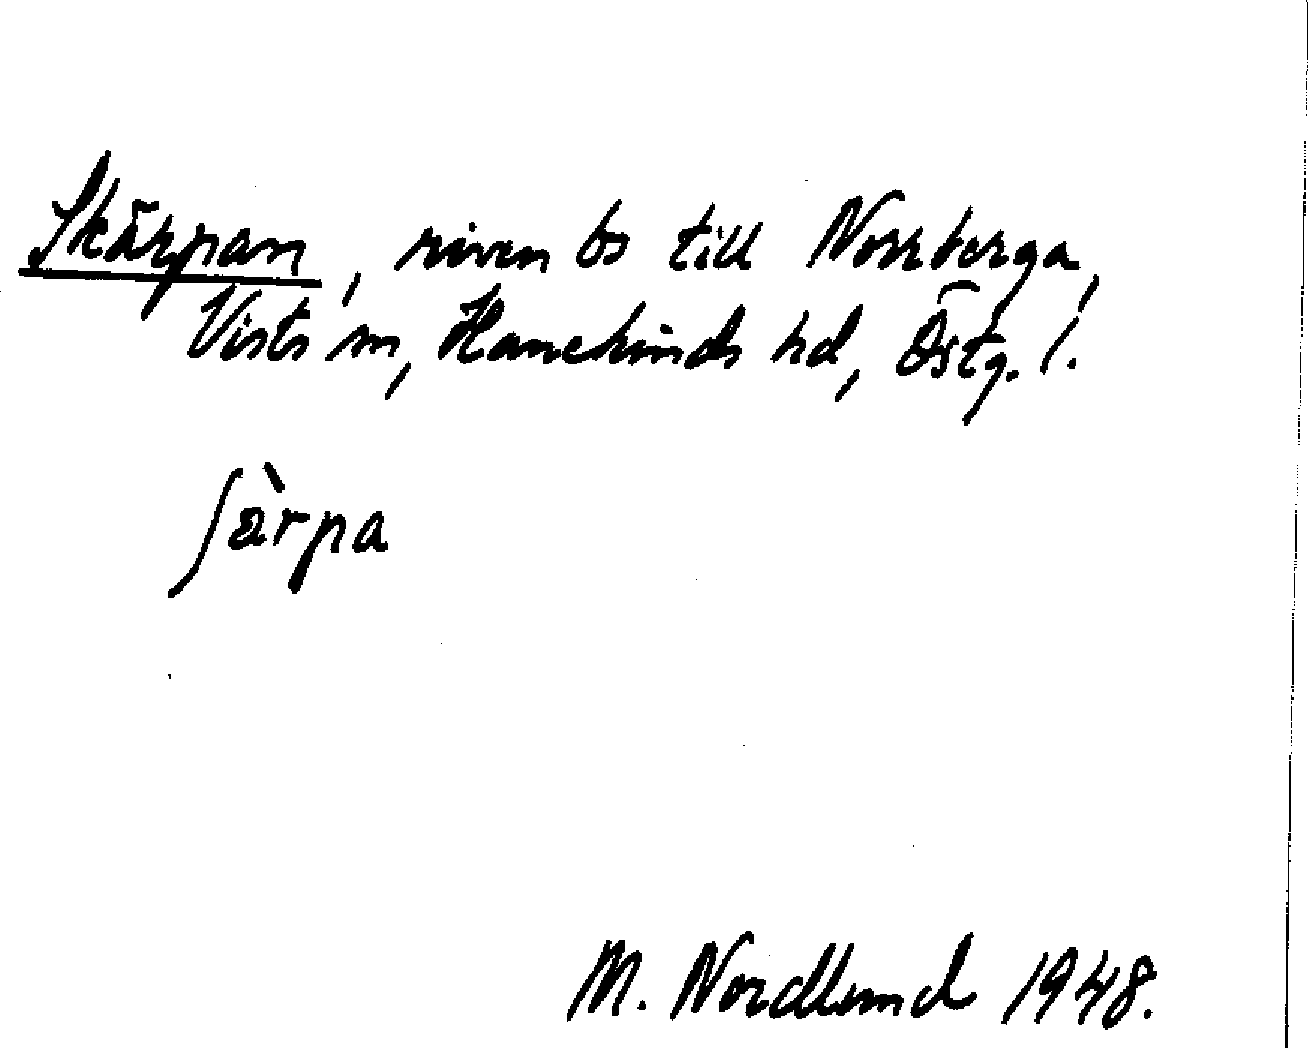 Skärpan, riven bs till Norrberga,
Vists sn, Hanekinds hd, Östg. l.
ʃàrpa
M. Nordlund 1948.